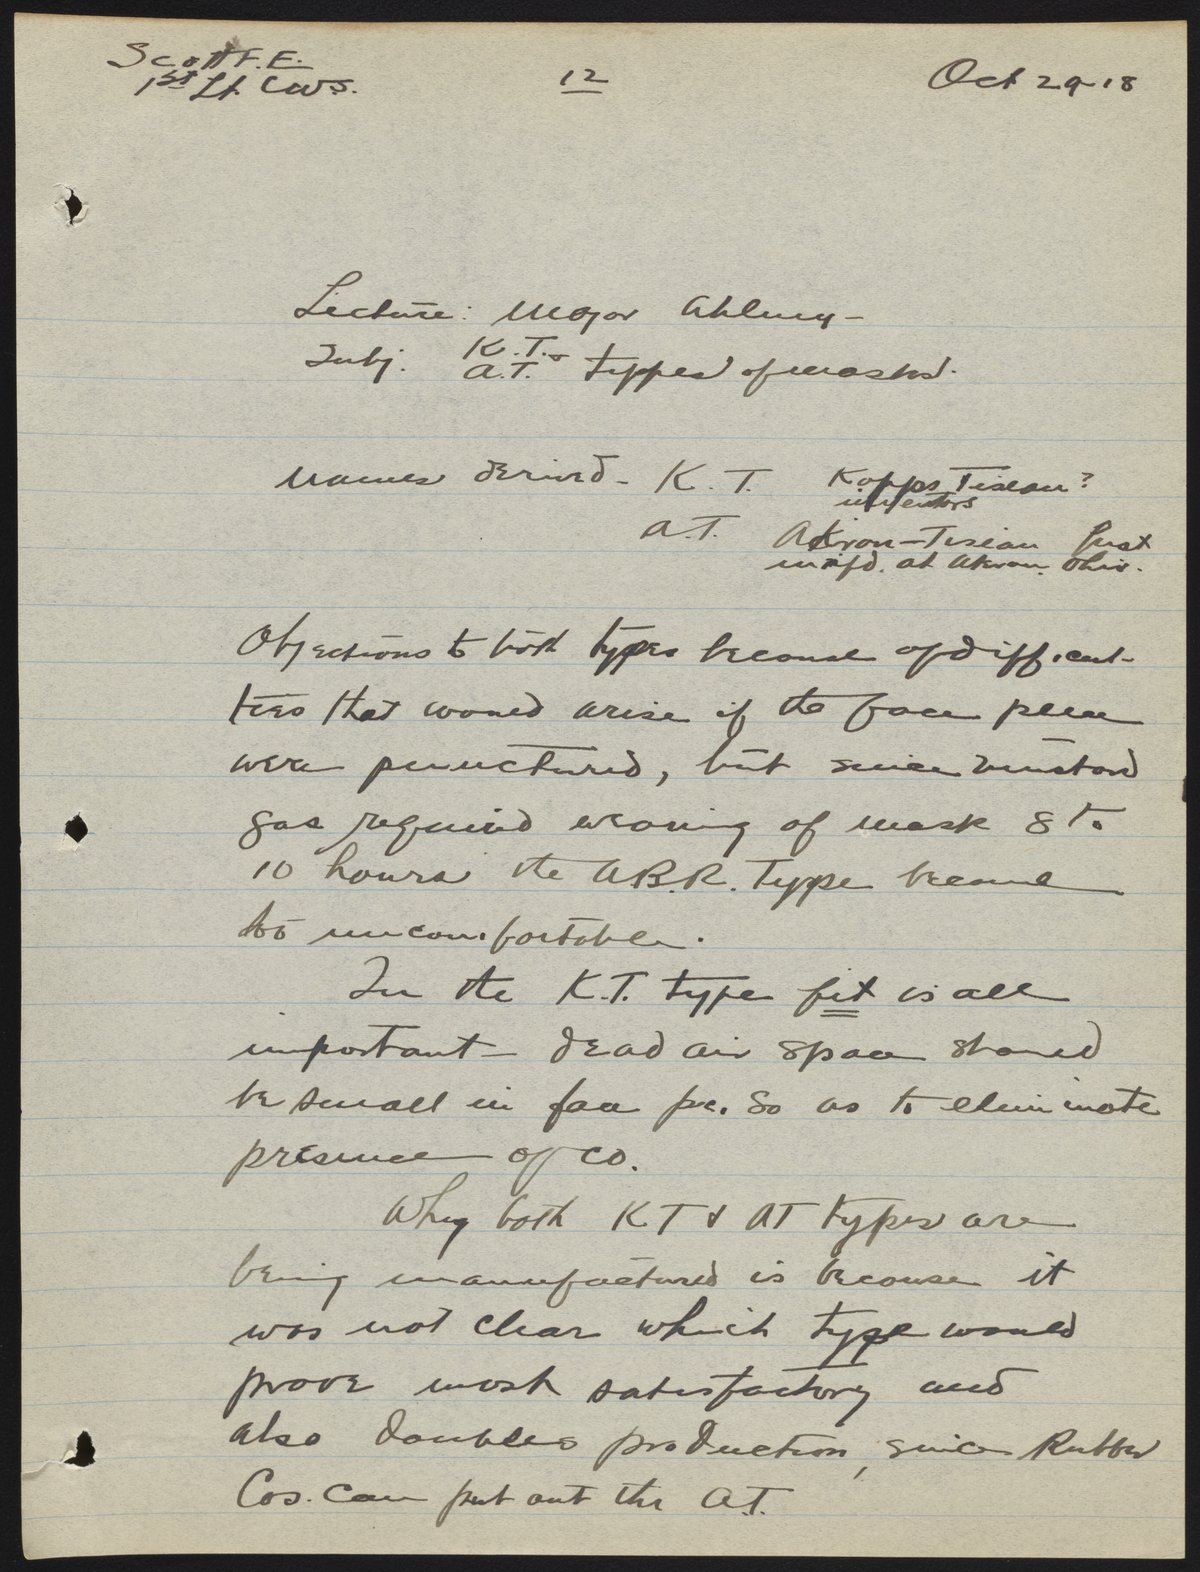 Scott F. E.
1st Lt. CWS.
12
Oct 29-18
Lecture: Major
Subj. K.T. & A.T. types of masks.
Names derived - K. T. Kopps Tissau?
inventors
A.T. Akron-Tissau first
m'n'f'd. at Akron. Ohio.
Objections to both types because of difficul-
ties that would arise if the face piece
were punctured, but since mustard
gas required wearing of mask 8 to
10 hours the A.B.R. type became
too uncomfortable.
In the K.T. type fit is all
important - dead air space should
be small in face pc. so as to eliminate
presence of CO.
Why both KT & AT types are
being manufactured is because it
was not clear which type would
prove most satisfactory and
also doubles production, since Rubber
Cos. can put out the A.T.